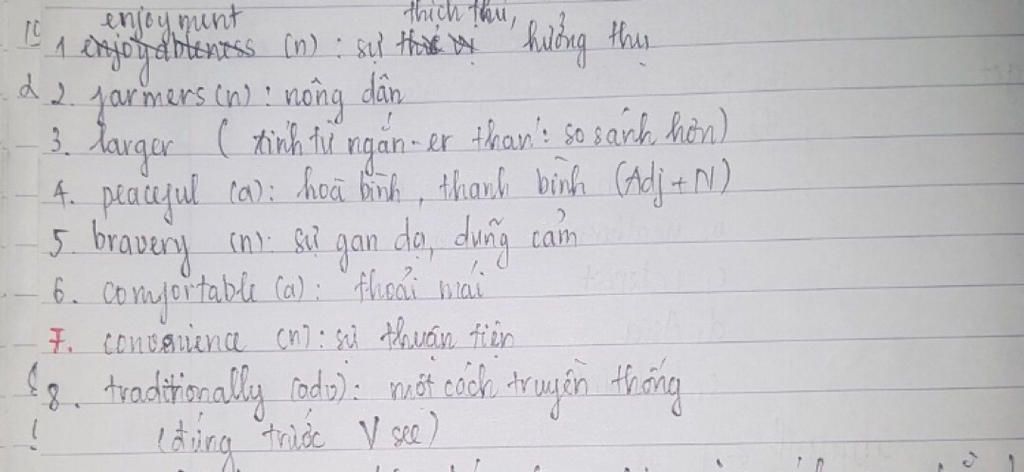 enjoyment thích thú,
1 enjoyableness (n): sự thú vị hưởng thụ
2. farmers (n): nông dân
3. larger (tính từ ngắn-er than: so sánh hơn)
4. peaceful (a): hoà bình, thanh bình (Adj + N)
5. bravery (n): sự gan dạ, dũng cảm
6. comfortable (a): thoải mái
7. convenience (n): sự thuận tiện
8. traditionally (adv): một cách truyền thống
(đứng trước V see)